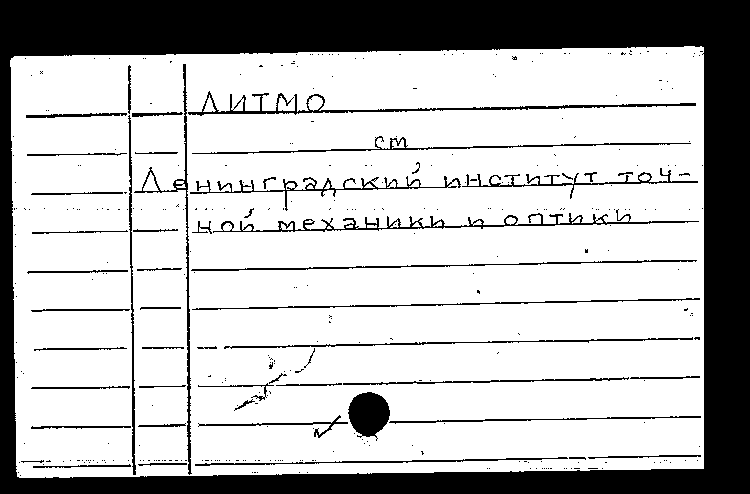 ЛИТМО
ст
Ленинградский институт точ-
ной механики и оптики